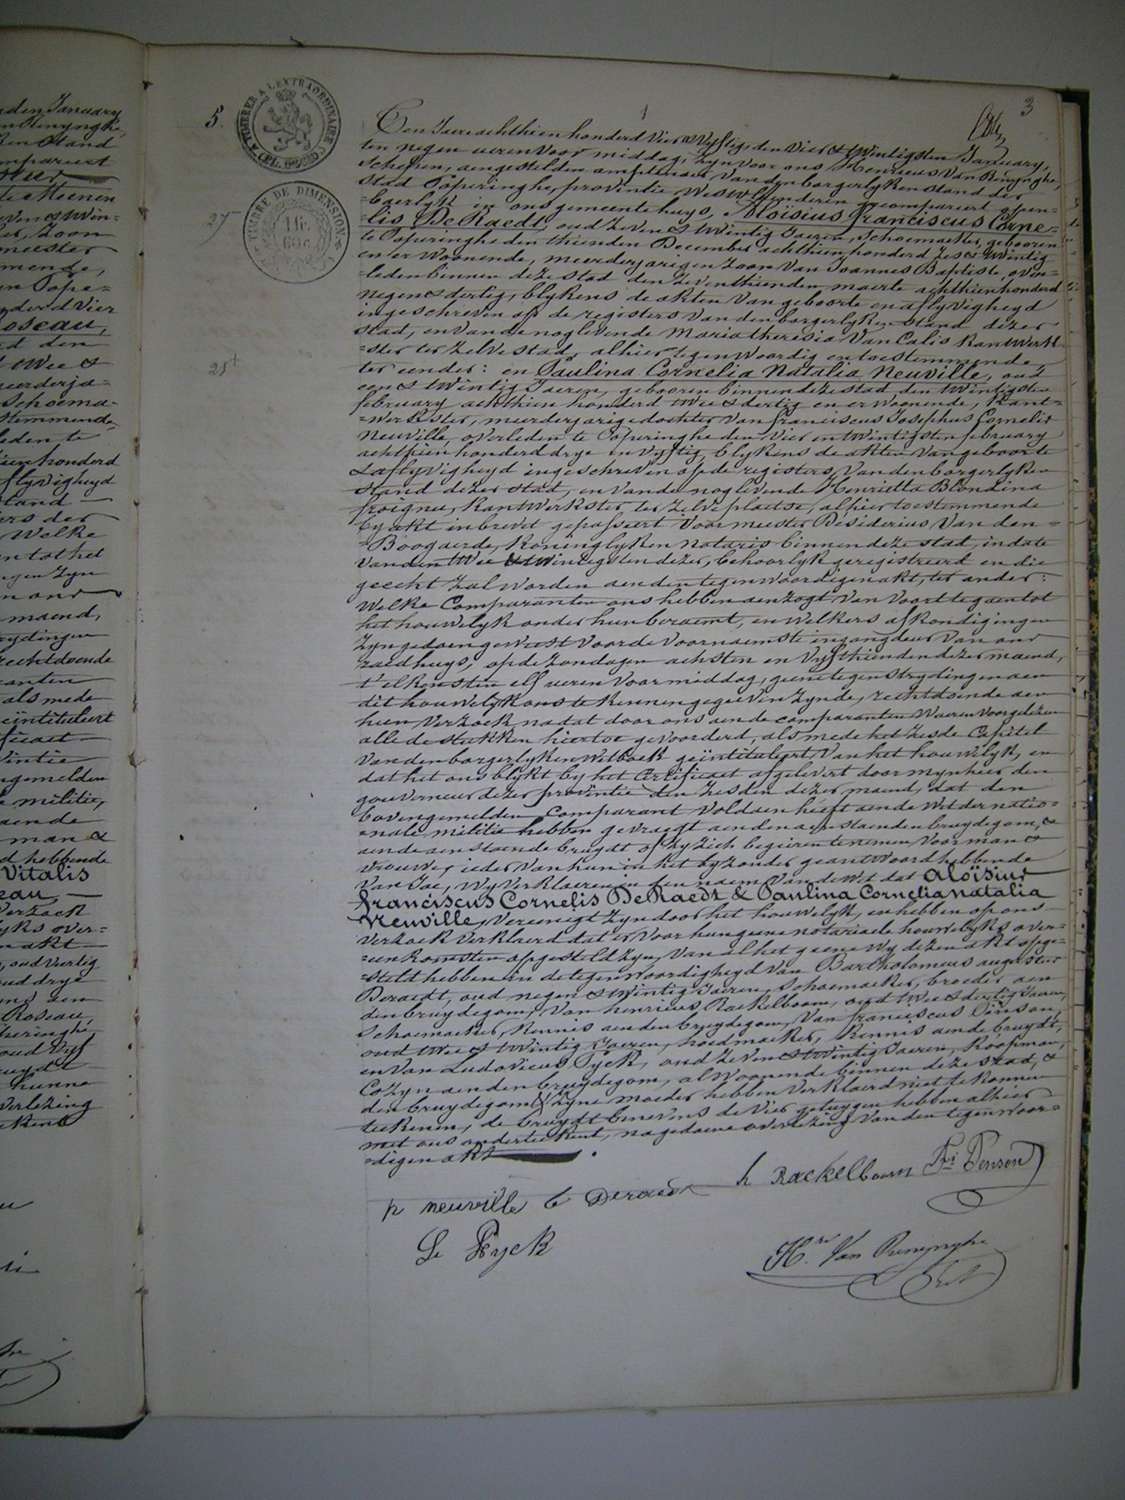 3
5.
TIMBRE A L'EXTRAORDINAIRE
TIMBRE DE DIMENSION
27
28
Den Jaere achthien honderd vier & vyftig, den vier & twintigsten January,
ten negen ueren voor middag, zyn voor ons Henricus Van Renynghe,
schepen, aengestelden amptenaer van den borgerlyken stand der
stad Poperinghe, provintie Westvlaenderen gecompareert open-
=baerlyk in ons gemeentehuys, Aloisius franciscus Corne=
=lis De Raedt, oud zeven & twintig Jaeren, schoemaeker, gebooren
te Poperinghe den thienden December achthien honderd zes & twintig
en er woonende, meerderjarigen zoon van Joannes Baptiste, over-
=leden binnen deze stad den zeventhienden maerte achthien honderd
negen & dertig, blykens de akten van geboorte en aflyvigheyd
ingeschreven op de registers van den borgerlyken stand dezer
stad, en van de noglevende Maria theresia Van Calis kantwerk-
=ster ter zelve stad, alhier tegenwoordig en toestemmende
ter eender: en Paulina Cornelia Natalia Neuville, oud
een & twintig Jaeren, gebooren binnen deze stad den twintigsten
february achthien honderd twee & dertig en er woonende, kant=
=werkster, meerderjarige dochter van franciscus Josephus Cornelis
Neuville, overleden te Poperinghe den vier en twintigsten february
achthien honderd drye en vyftig, blykens de akten van geboorte
& aflyvigheyd ingeschreven op de registers van den borgerlyken
stand dezer stad, en van de noglevende Henrietta Blondina
froignu, kantwerkster, ter zelve plaetse, alhier toestemmende
by akt in brevet gepasseert voor meester Desiderius Van den=
=Boogaerde, koninglyken notaris binnen deze stad, in date
van den twee & twintigsten dezer, behoorlyk geregistreerd en die
geecht zal worden aen den tegenwoordigen akt, ter ander:
Welke Comparanten ons hebben aenzogt van voort te gaen tot
het houwelyk onder hun beraemt, en welkers afkondigingen
zyn gedaen geweest voor de voornaemste ingangdeur van ons
raedhuys, op de zondagen achsten en vyfthienden dezer maend,
t'elkensten elf ueren voormiddag, geene tegenstrydingen aen
dit houwelyk ons te kennen gegeeven zynde, rechtdoende aen
hun verzoek, nadat door ons aende comparanten waeren voorgelezen
alle de stukken hiertoe gevoorderd, als mede het zesde Capitel
van den borgerlyken Wetboek geïntituleert, Van het houwelyk, en
dat het ons blykt by het Certificaet afgelevert door mynheer den
gouverneur dezer provintie den zesden dezer maend, dat den
bovengemelden Comparant voldaen heeft aende wet der natio-
=nale militie hebben gevraegt aenden aenstaenden bruydegom, &
aende aenstaende bruydt of zy zich begeeren te nemen voor man &
vrouwe, ieder van hun in het byzonder geantwoord hebbende
Van Jae, wy verklaeren in den naem van de wet dat Aloïsius
franciscus Cornelis De Raedt & Paulina Cornelia Natalia
Neuville, vereenigt zyn door het houwelyk, en hebben op ons
verzoek verklaerd dat er voor hun geene notariaele houwelyks over-
=eenkomsten opgesteld zyn, van al het geene wy dezen akt opge-
=steld hebben in de tegenwoordigheyd van Bartholomeus augustus
Deraedt, oud negen & twintig Jaeren, schoemaeker, broeder aen
den bruydegom, Van henricus Raekelboom, oud twee & dertig Jaeren,
schoemaeker, kennis aen den bruydegom, Van franciscus Pinson,
oud twee & twintig Jaeren, hoedmaeker, kennis aende bruydt,
en van Ludovicus Pyck, oud zeven & twintig Jaeren, koopman,
Cozyn aen den bruydegom, al woonende binnen deze stad, &
den bruydegom & zyne moeder hebben verklaerd niet te konnen
teekenen, de bruydt benevens de vier getuygen hebben alhier
met ons onderteekent, na gedaene overlezing van den tegenwoor-
=digen akt
p neuville b Deraedt h Raekelboom Fri Penson
Le Pyck
H.re Van Renynghe